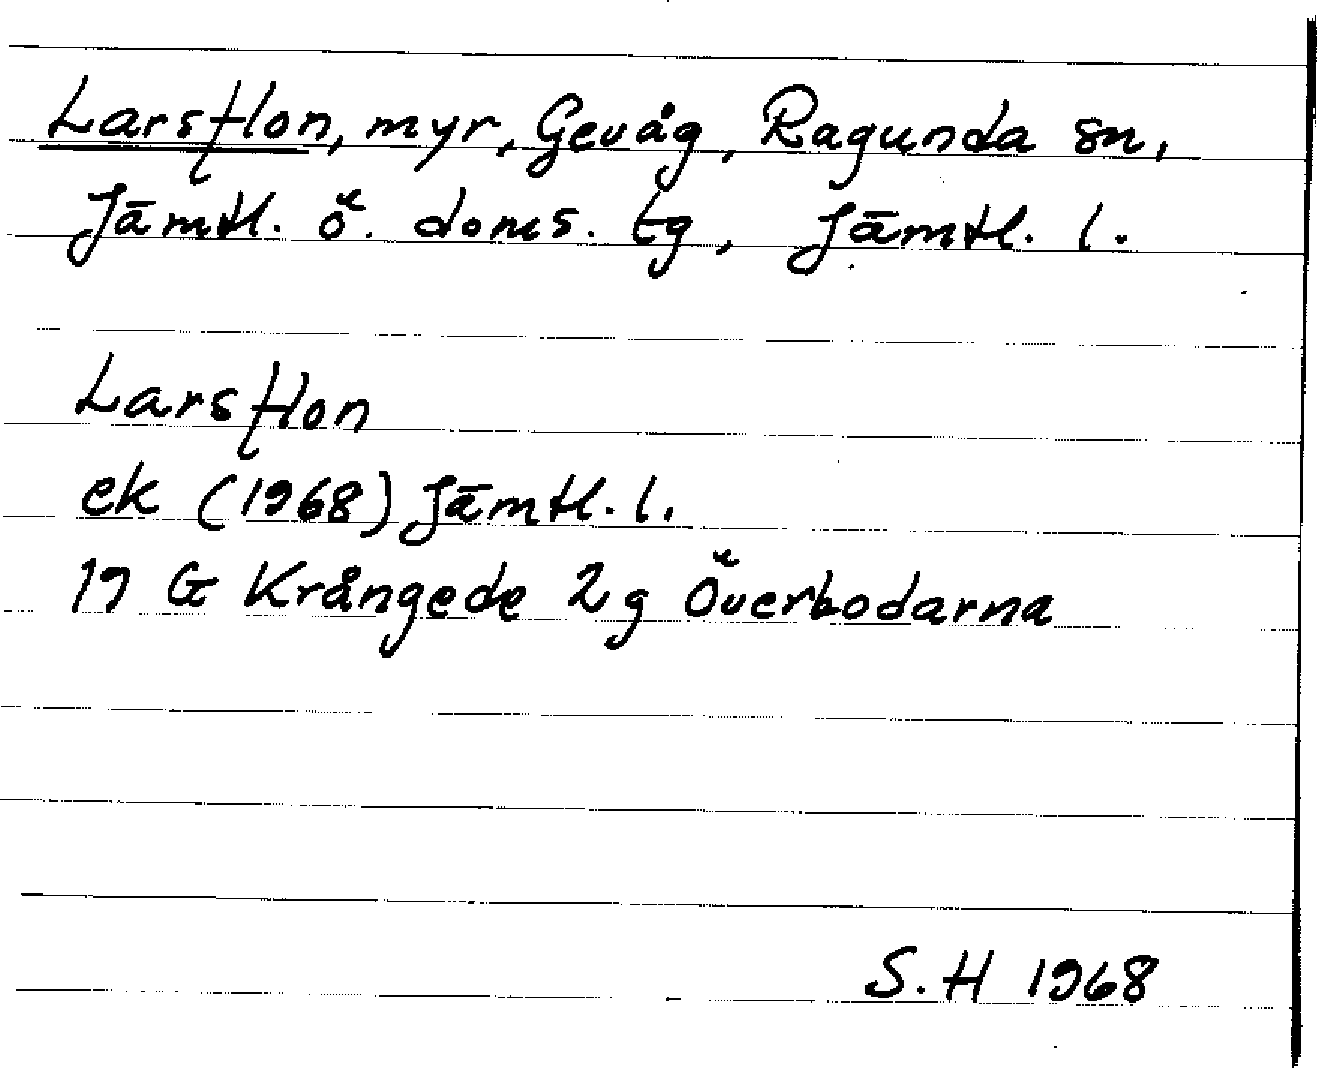 Larsflon, myr, Gevåg, Ragunda sn,
Jämtl. ö. doms. tg, Jämtl. l.
Larsflon
ek (1968) Jämtl. l.
19 G Krångede 2g Överbodarna
S.H 1968